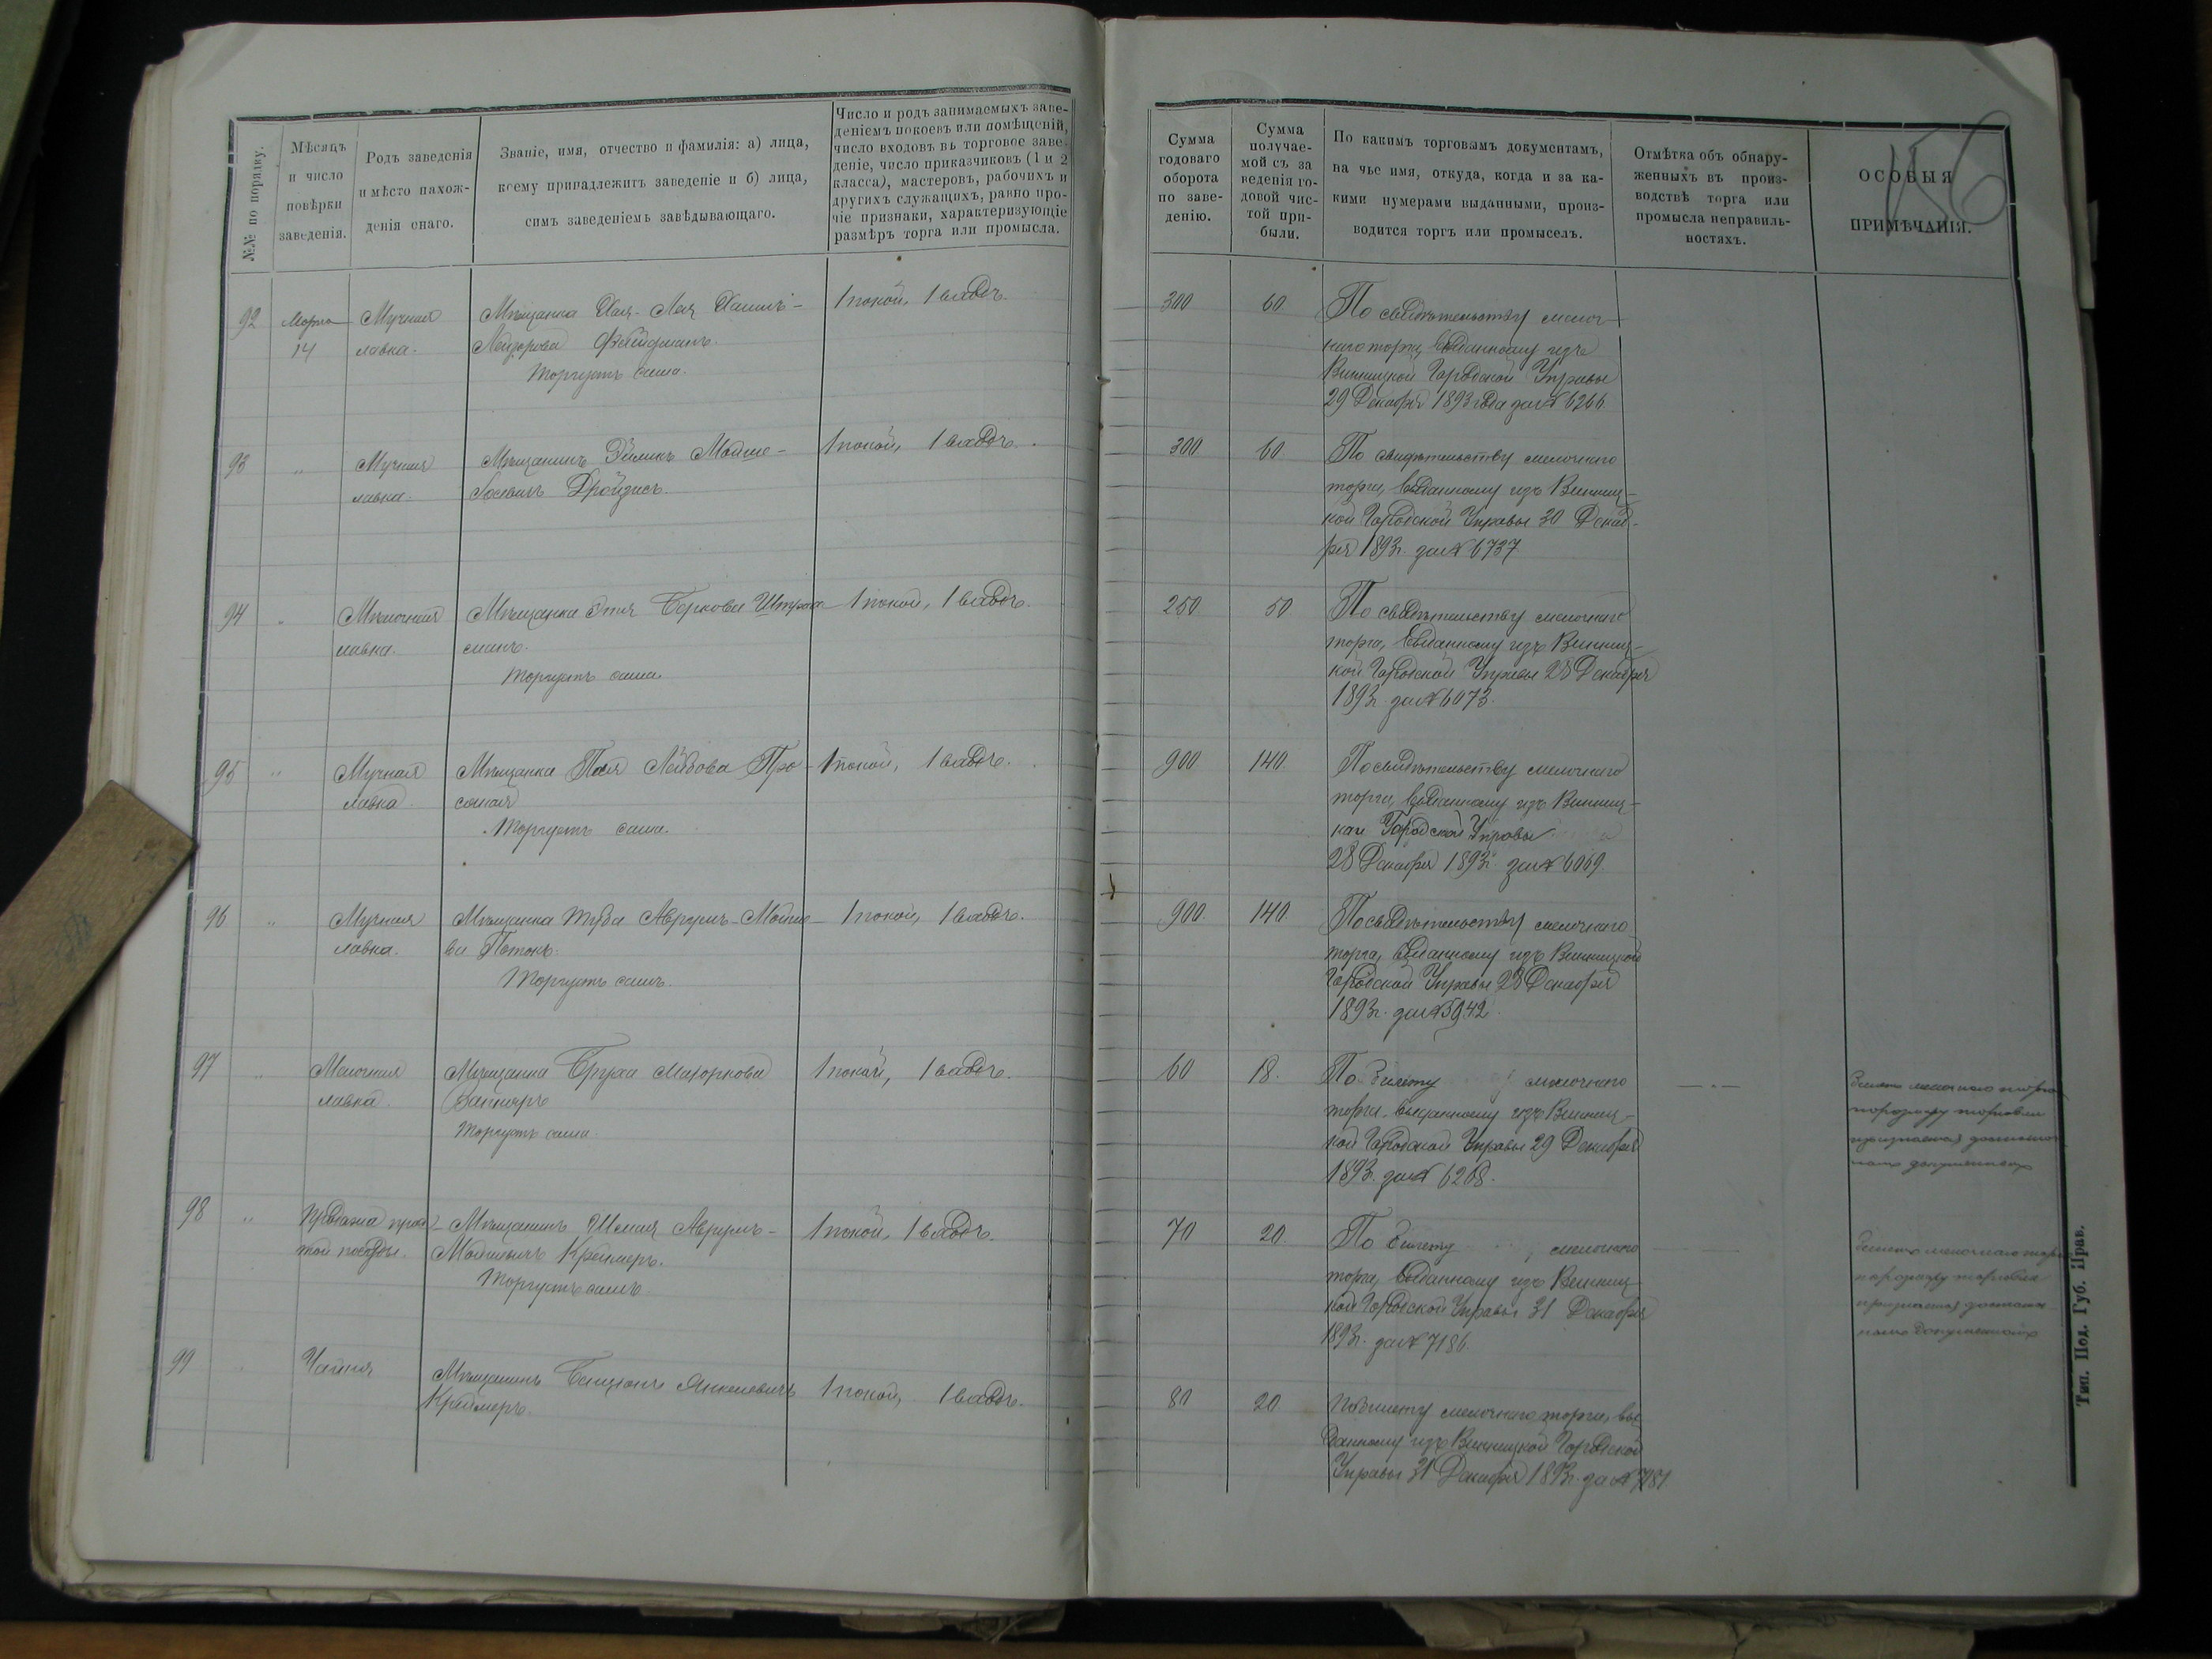 №№ по порядку.
Мѣсяцъ
и число
повѣрки
заведенія.
Родъ заведенія
и мѣсто нахож-
денія онаго.
Званіе, имя, отчество и фамилія: а) лица,
коему принадлежитъ заведеніе и б) лица,
симъ заведеніемъ завѣдывающаго.
Число и родъ занимаемыхъ заве-
деніемъ покоевъ или помѣщеній,
число входовъ въ торговое заве-
деніе, число приказчиковъ (1 и 2
класса), мастеровъ, рабочихъ и
другихъ служащихъ, равно про-
чіе признаки, характеризующіе
размѣръ торга или промысла.
Сумма
годоваго
оборота
по заве-
денію.
Сумма
получае-
мой съ за
веденія го-
довой чис-
той при-
были.
По какимъ торговымъ документамъ,
на чье имя, откуда, когда и за ка-
кими нумерами выданными, произ-
водится торгъ или промыселъ.
Отмѣтка объ обнару-
женныхъ въ произ-
водствѣ торга или
промысла неправиль-
ностяхъ.
ОСОБЫЯ
ПРИМѢЧАНІЯ.
156
92
Марта
14
Мучная
лавка.
Мѣщанка Хая-Лея
Лейзорова Файдманъ.
Торгуетъ сама.
1 покой, 1 входъ.
300
60
По свидѣтельству мелоч-
наго торга, выданному изъ
Винницкой Городской Управы
29 Декабря 1893 года за № 6266.
93
"
Мучная
лавка.
Мѣщанинъ Мойше-
Іосевичъ
1 покой, 1 входъ.
300
60
По свидѣтельству мелочнаго
торга, выданному изъ Винниц-
кой Городской Управы 30 Декаб-
ря 1893г. за № 6737
94
"
Мѣлочная
лавка.
Мѣщанка Этя Беркова Штрах-
манъ.
Торгуетъ сама.
1 покой, 1 входъ.
250
50
По свидѣтельству мелочнаго
торга, выданному изъ Винниц-
кой Городской Управы 28 Декабря
1893г. за № 6073.
95
"
Мучная
лавка.
Мѣщанка Лейбова Про-
Торгуетъ сама.
1 покой, 1 входъ.
900
140.
По свидѣтельству мелочнаго
торга, выданному изъ Винниц-
кой Городской Управы
28 Декабря 1893г. за № 6069.
96
"
Мучная
лавка.
Мѣщанка Туба Аврумъ-Мошко-
ва Потокъ.
Торгуетъ самъ.
1 покой, 1 входъ.
900.
140.
По свидѣтельству мелочнаго
торга, выданному изъ Винницкой
Городской Управы 28 Декабря
1893г. за № 5942.
97
"
Мелочная
лавка.
Мѣщанка Бруха
Торгуетъ сама.
1 покой, 1 входъ.
60
18.
По билету мелочнаго
торга, выданному изъ Винниц-
кой Городской Управы 29 Декабря
1893г. за № 6268.
Билетъ мелочнаго торга
по роду торговли
признается
документомъ
98
"
Продажа прос-
той посуды.
Мѣщанинъ Шмая Аврумъ-
Мошковичъ Креймеръ.
Торгуетъ самъ.
1 покой, 1 входъ.
70
20.
По билету мелочнаго
торга, выданному изъ Винниц-
кой Городской Управы 31 Декабря
1893г. за № 7186.
Билетъ мелочнаго торга
по роду торговли
признается
документомъ
99
Чайная
Мѣщанинъ Бенціонъ Янкелевичъ
Креймеръ.
1 покой, 1 входъ.
80
20
По билету мелочнаго торга, вы-
данному изъ Винницкой Городской
Управы 31 Декабря 1893г. за № 7181.
Тип. Под. Губ. Прав.